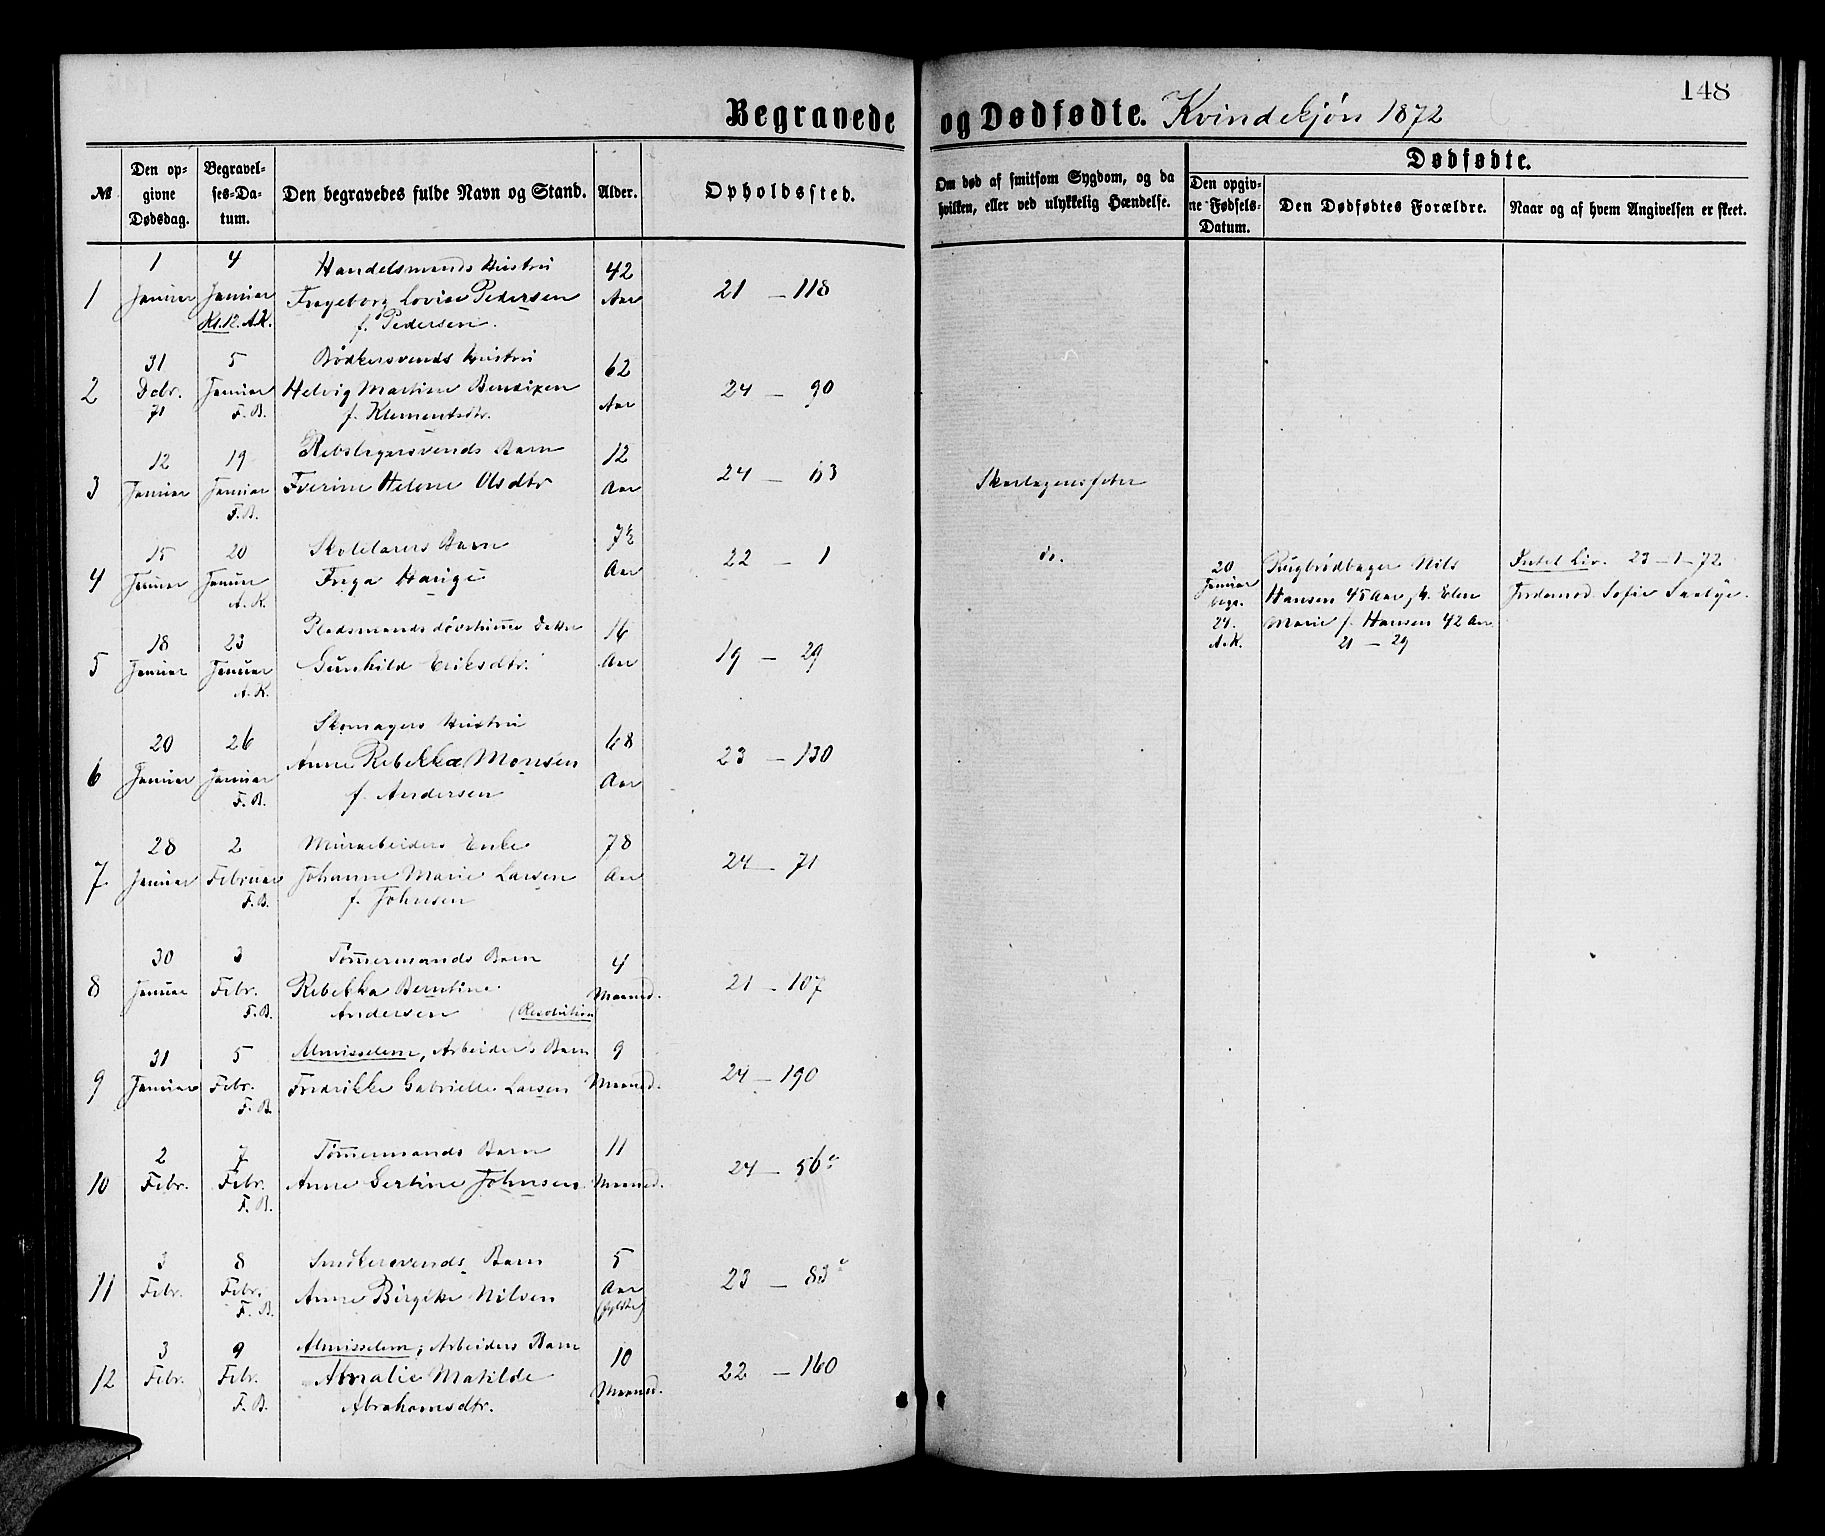 148
Begravede og Dødfødte. Kvindekjøn 1872
№
Den opgivne Dødsdag.
Begravelses-Datum.
Den begravedes fulde Navn og Stand.
Alder.
Opholdssted.
Om død af smitsom Sygdom, og da hvilken, eller ved ulykkelig Hændelse.
Dødfødte.
Den opgivne Fødsels-Datum.
Den Dødfødtes Forældre.
Naar og af hvem Angivelsen er skeet.
1 4 Handelsmands Hustru 42
1 Januar Januar Ingeborg Lovise Pedersen Aar 21 – 118
Kl. 12. A.K. f. Pedersen.
31 5 Bødkersvends Hustru 62
2 Dcbr. Januar Helvig Martine Bendixen 24 – 90
71 F.B. f. Klementsdtr. Aar
12 19 Rebslagersvends Barn 12
3 Januar Januar Iverine Helene Olsdtr Aar 24 – 63 Skarlagensfeber
F.B.
15 20 Skolelærers Barn 7½
4 Januar Januar Inga Hauge Aar 22 – 1 do.
A.K.
20 Januar begr. 24. A.K.
Rugbrødbager Nils
Hansen 45 Aar, h. Elen
Marie f. Hansen 42 Aar
21 – 29
Intet Liv. 23–1–72
Jordemod. Sofie Saebye.
18 23 Pladsmands døvstumme Datter 16
5 Januar Januar Gunhild Eriksdtr. Aar 19 – 29
A.K.
20 26 Skomagers Hustru 68
6 Januar Januar Anne Rebekka Monsen Aar 23 – 130
F.B. f. Andersen
28 2 Murarbeiders Enke 78
7 Januar Februar Johanne Marie Larsen Aar 24 – 71
F.B. f. Johnsen
30 3 Tømmermands Barn 4
8 Januar Febr. Rebekka Berntine Maaned. 21 – 107
F.B. Andersen (Resolution
31 5 Almisselem, Arbeiders Barn 9
9 Januar Febr. Fredrikke Gabrielle Larsen Maaned. 24 – 190
F.B.
2 7 Tømmermands Barn 11
10 Febr. Febr. Anne Gertine Johnsen Maaned. 24 – 56
F.B.
3 8 Barn 5
11 Febr. Febr. Anne Birgitte Nilsen Aar 23 – 83
F.B. (fyldte)
3 9 Almisselem, Arbeiders Barn 10
12 Febr. Febr. Amalie Matilde Maaned. 22 – 160
F.B. Abrahamsdtr.